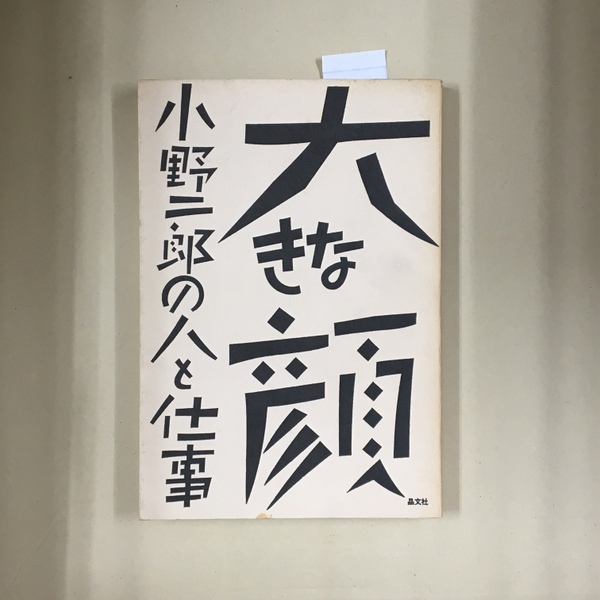 大きな顔
小野二郎の人と仕事
晶文社